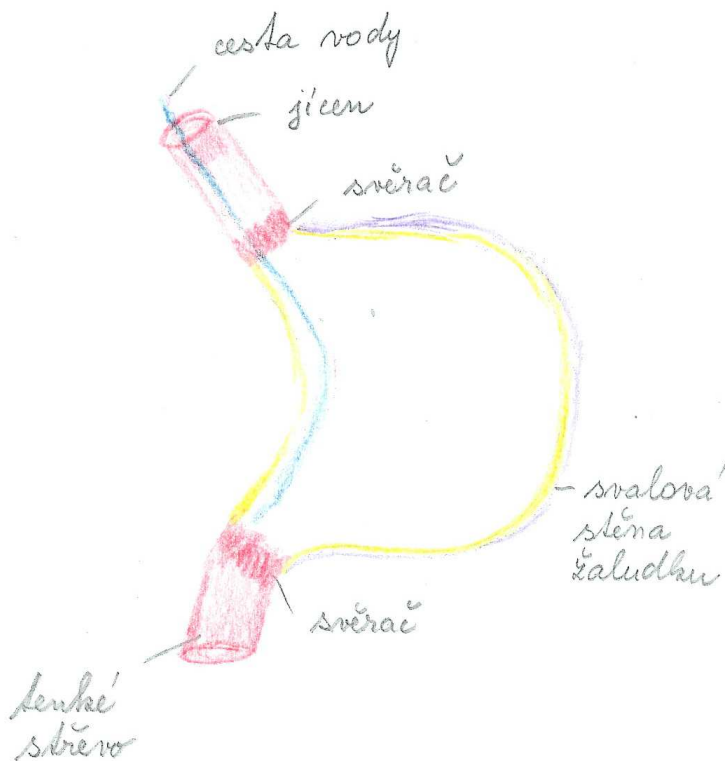 cesta vody
jícen
svěrač
svalová
stěna
žaludku
svěrač
tenké
střevo